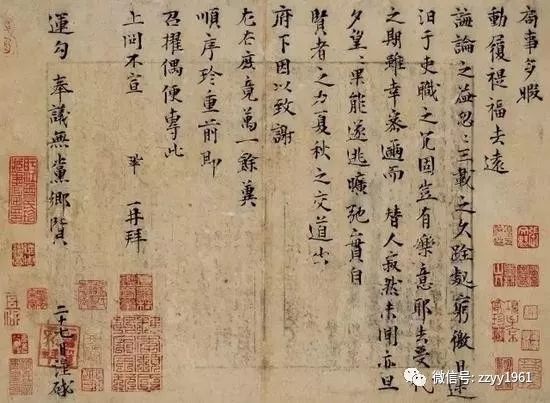 局事多暇
動履禔福去遠
誨論之益忽〻三載之久跧處窮徼日迷
汨于吏職之冗固豈有樂意耶去受代
之期雖幸密邇而 替人寂然未聞亦旦
夕望〻果能遂逃曠弛實自
賢者之力夏秋之交道出
府下因以致謝
左右庶竟萬一餘冀
順序珍重前即
召擢偶便專此
上問不宣 鞏 再拜
運勾奉議無黨鄉賢 二十七日謹啓
微信号: zzyy1961